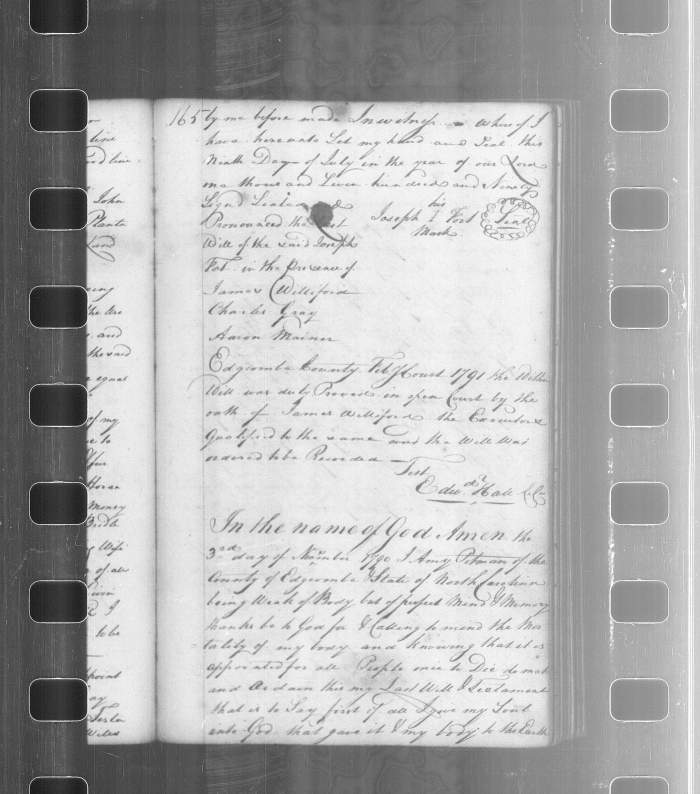 line
John
Planta
Land
the are
and
the said
equal
of my
to
Horse
Money
Wife
of all
I
to be
165 by me before made In witness whereof I
have hereunto Set my hand and Seal this
Ninth Day of July in the year of our Lord
one thousand Seven hundred and Ninety
Signd Seald
his
Joseph I Fort Seal
Mark
Pronounced the Last
Will of the said Joseph
Fort in the Presence of
James Williford
Charles Gray
Aaron Mainer
Edgcombe County Feby Court 1791 the Within
Will was duly Proved in open Court by the
oath of James Williford the Executors
Qualified to the same and the Will Was
ordered to be Recorded
Test
Edwd Hall C.C.
In the name of God Amen the
3rd day of November 1790 I Amy Pitman of the
County of Edgcombe & State of North Carolina
being Weak of Body but of perfect Mind & Memory
thanks be to God for it Calling to mind the Mor
tality of my body and Knowing that it is
appointed for all People once to Die do make
and Ordain this my Last Will & Testament
that is to Say first of all I give my Soul
unto God that gave it & my body to the Earth